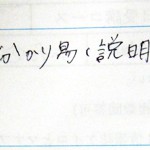 分かり易く説明